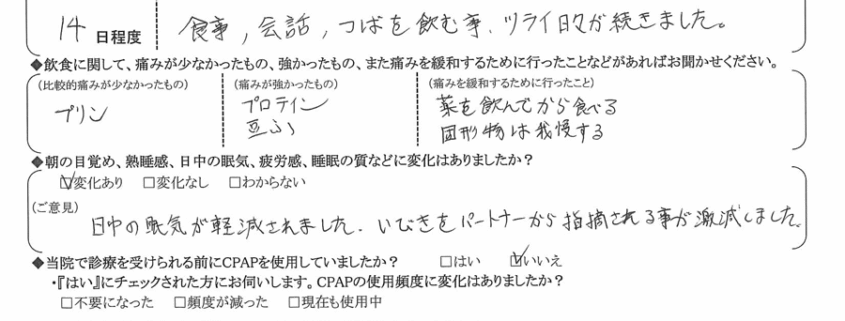 14日程度 食事，会話，つばを飲む事、ツライ日々が続きました。
◆飲食に関して、痛みが少なかったもの、強かったもの、また痛みを緩和するために行ったことなどがあればお聞かせください。
(比較的痛みが少なかったもの) (痛みが強かったもの) (痛みを緩和するために行ったこと)
プリン プロテイン 薬を飲んでから食べる
豆ふ 固形物は我慢する
◆朝の目覚め、熟睡感、日中の眠気、疲労感、睡眠の質などに変化はありましたか？
☑変化あり □変化なし □わからない
(ご意見)
日中の眠気が軽減されました。いびきをパートナーから指摘される事が激減しました。
◆当院で診療を受けられる前にCPAPを使用していましたか？ □はい ☑いいえ
・『はい』にチェックされた方にお伺いします。CPAPの使用頻度に変化はありましたか？
□不要になった □頻度が減った □現在も使用中